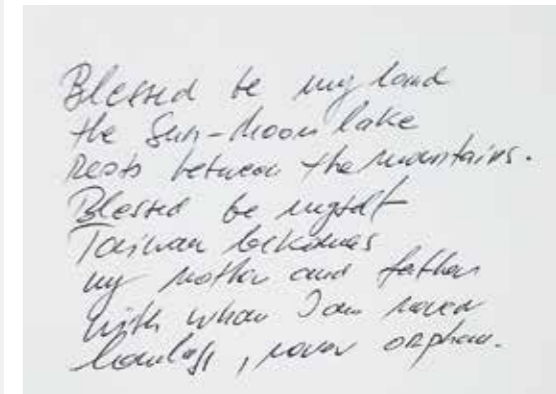 Blessed be my land
the Sun-Moon lake
rests between the mountains.
Blessed be myself
Taiwan becomes
my mother and father
with whom I am never
homeless, never orphan.